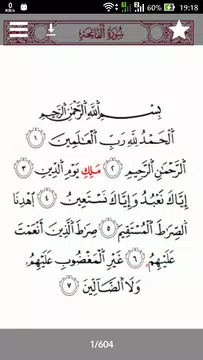 0
KB/s
71%
19:18
سُورَةُ ٱلْفَاتِحَةِ
بِسْمِ ٱللَّهِ ٱلرَّحْمَٰنِ ٱلرَّحِيمِ
ٱلْحَمْدُ لِلَّهِ رَبِّ ٱلْعَٰلَمِينَ ١
ٱلرَّحْمَٰنِ ٱلرَّحِيمِ ٢ مَلِكِ يَوْمِ ٱلدِّينِ ٣
إِيَّاكَ نَعْبُدُ وَإِيَّاكَ نَسْتَعِينُ ٤ ٱهْدِنَا
ٱلصِّرَٰطَ ٱلْمُسْتَقِيمَ ٥ صِرَٰطَ ٱلَّذِينَ أَنْعَمْتَ
عَلَيْهِمُۥ ٦ غَيْرِ ٱلْمَغْضُوبِ عَلَيْهِمُۥ
وَلَا ٱلضَّآلِّينَ ٧
1/604